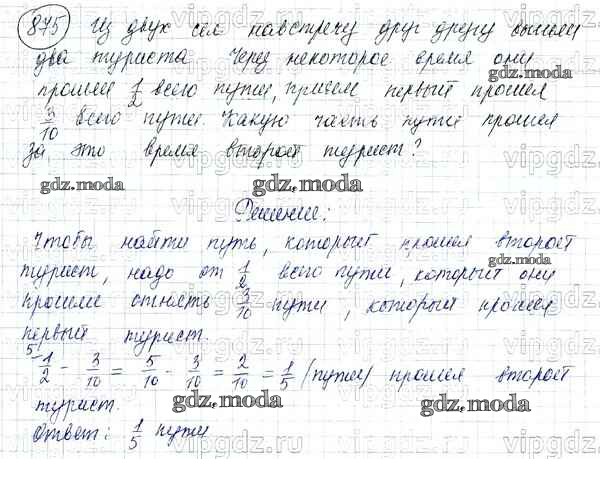 875 Из двух сёл навстречу друг другу вышли
два туриста. Через некоторое время они
прошли 1/2 всего пути, причем первый прошел
3/10 всего пути. Какую часть пути прошел
за это время второй турист?
gdz.moda gdz.moda
Решение:
Чтобы найти путь, который прошел второй
gdz.moda
турист, надо от 1/2 всего пути, который они
прошли отнять 3/10 пути, который прошел
первый турист.
1/2 - 3/10 = 5/10 - 3/10 = 2/10 = 1/5 (пути) прошел второй
турист. gdz.moda gdz.moda
Ответ: 1/5 пути
vipgdz.ru